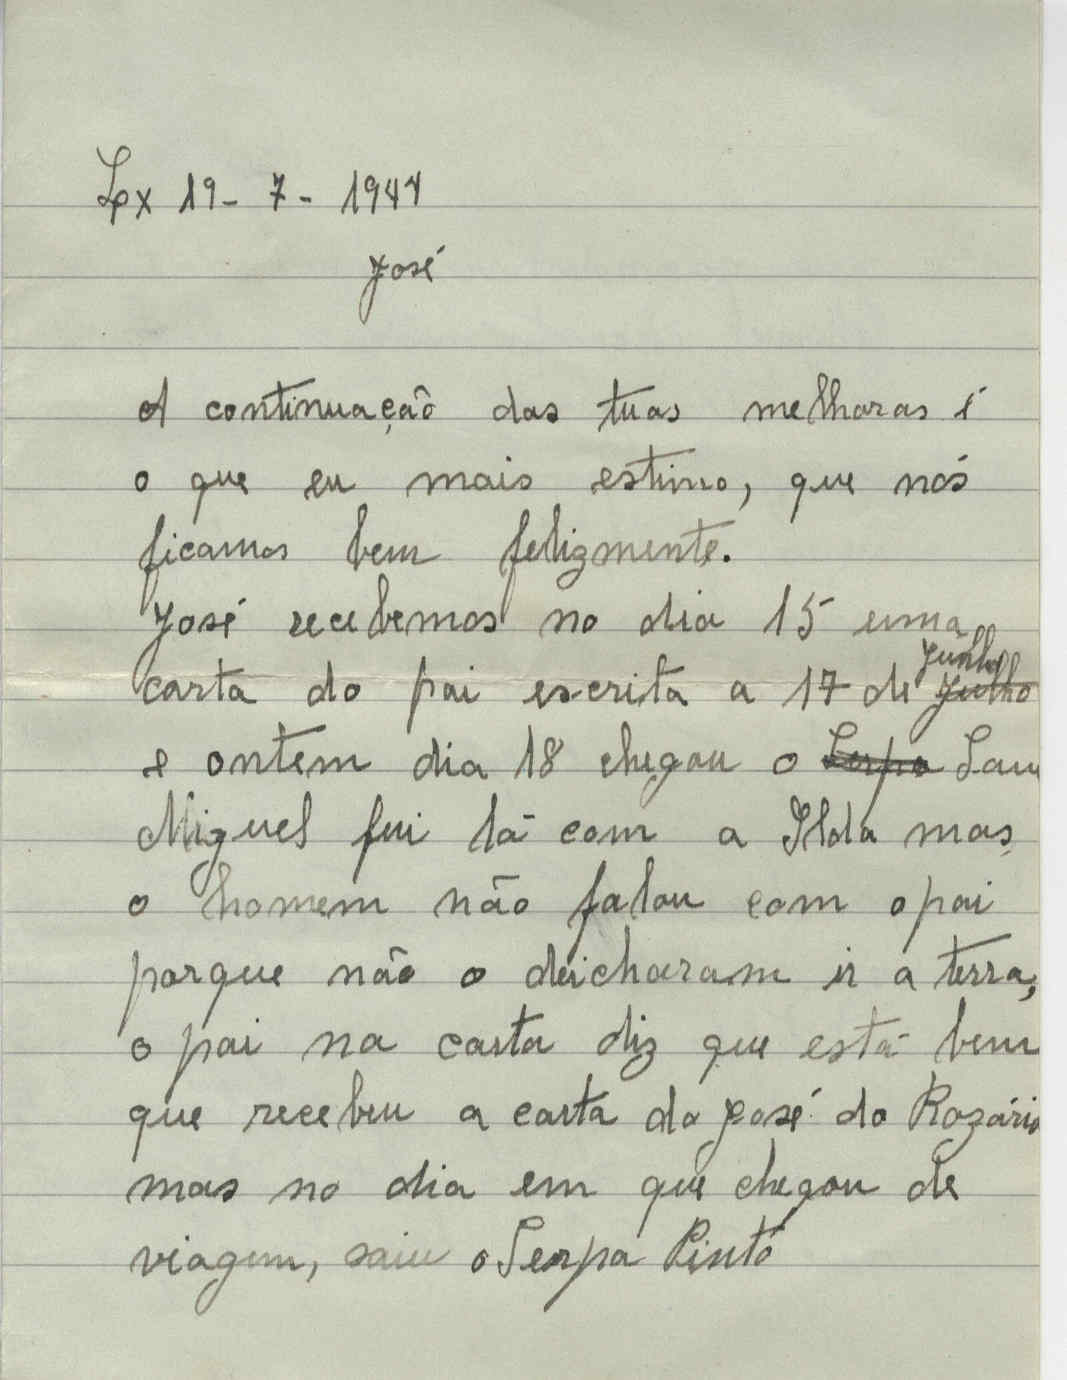 Lx 19- 7- 1944
José
A continuação das tuas melhoras é
o que eu mais estimo, que nós
ficamos bem felizmente.
José recebemos no dia 15 uma
Junho
carta do pai escrita a 17 de Julho
e ontem dia 18 chegou o Serpa Sam
Miguel fui lá com a Ilda mas
o homem não falou com o pai
porque não o deicharam ir a terra,
o pai na carta diz que está bem
que recebeu a carta do José do Rozário
mas no dia em que chegou de
viagem, saiu o Serpa Pinto